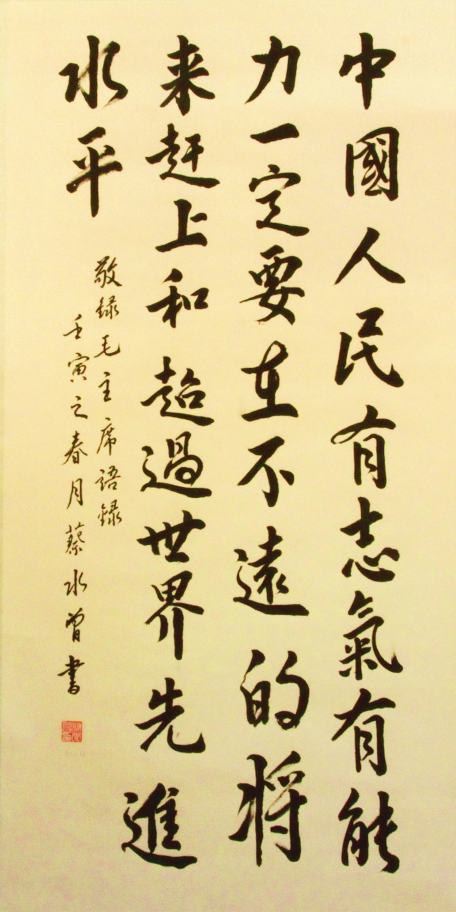 中國人民有志氣有能
力一定要在不遠的將
来赶上和超過世界先進
水平
敬録毛主席語録
壬寅之春月蔡水曾書